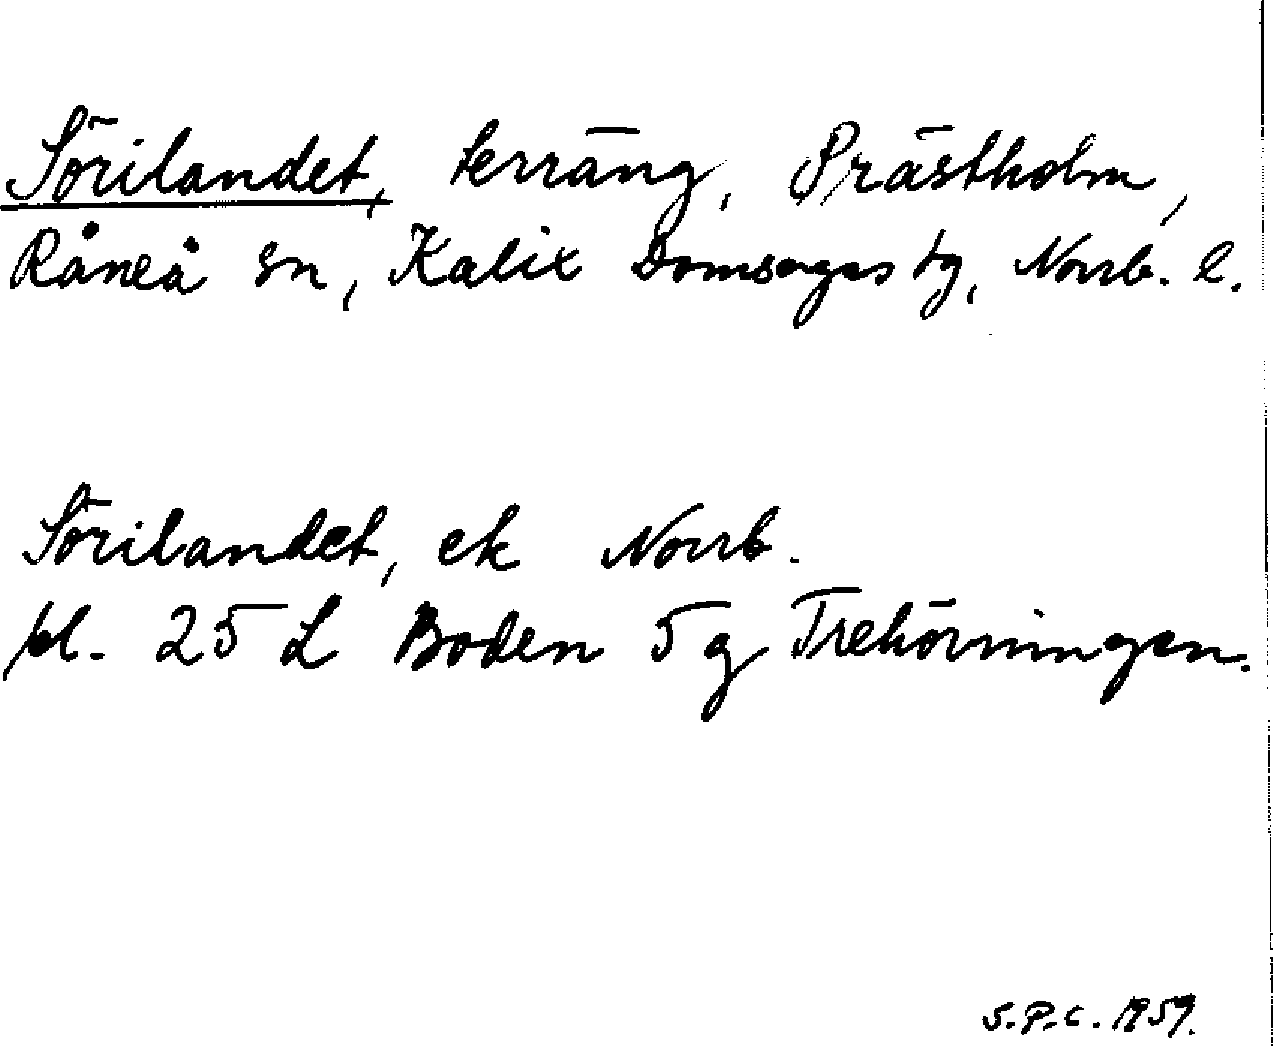 Sörilandet, terräng, Prästholm,
Råneå sn, Kalix Domsagas tg, Norrb. l.
Sörilandet, ek Norrb.
bl. 25 L Boden 5 g Trehörningen.
S.P.C. 1959.